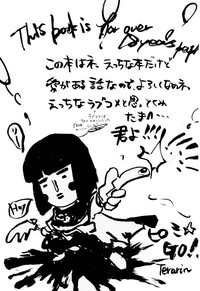 This book is for over
18 years
この本はネ えっちな本だけど
愛がある話なので、よろしくなのネ
えっちなラブコメと思ってくみ
たまえ〜…
君よ!!!
Hey
GO!
Terarin